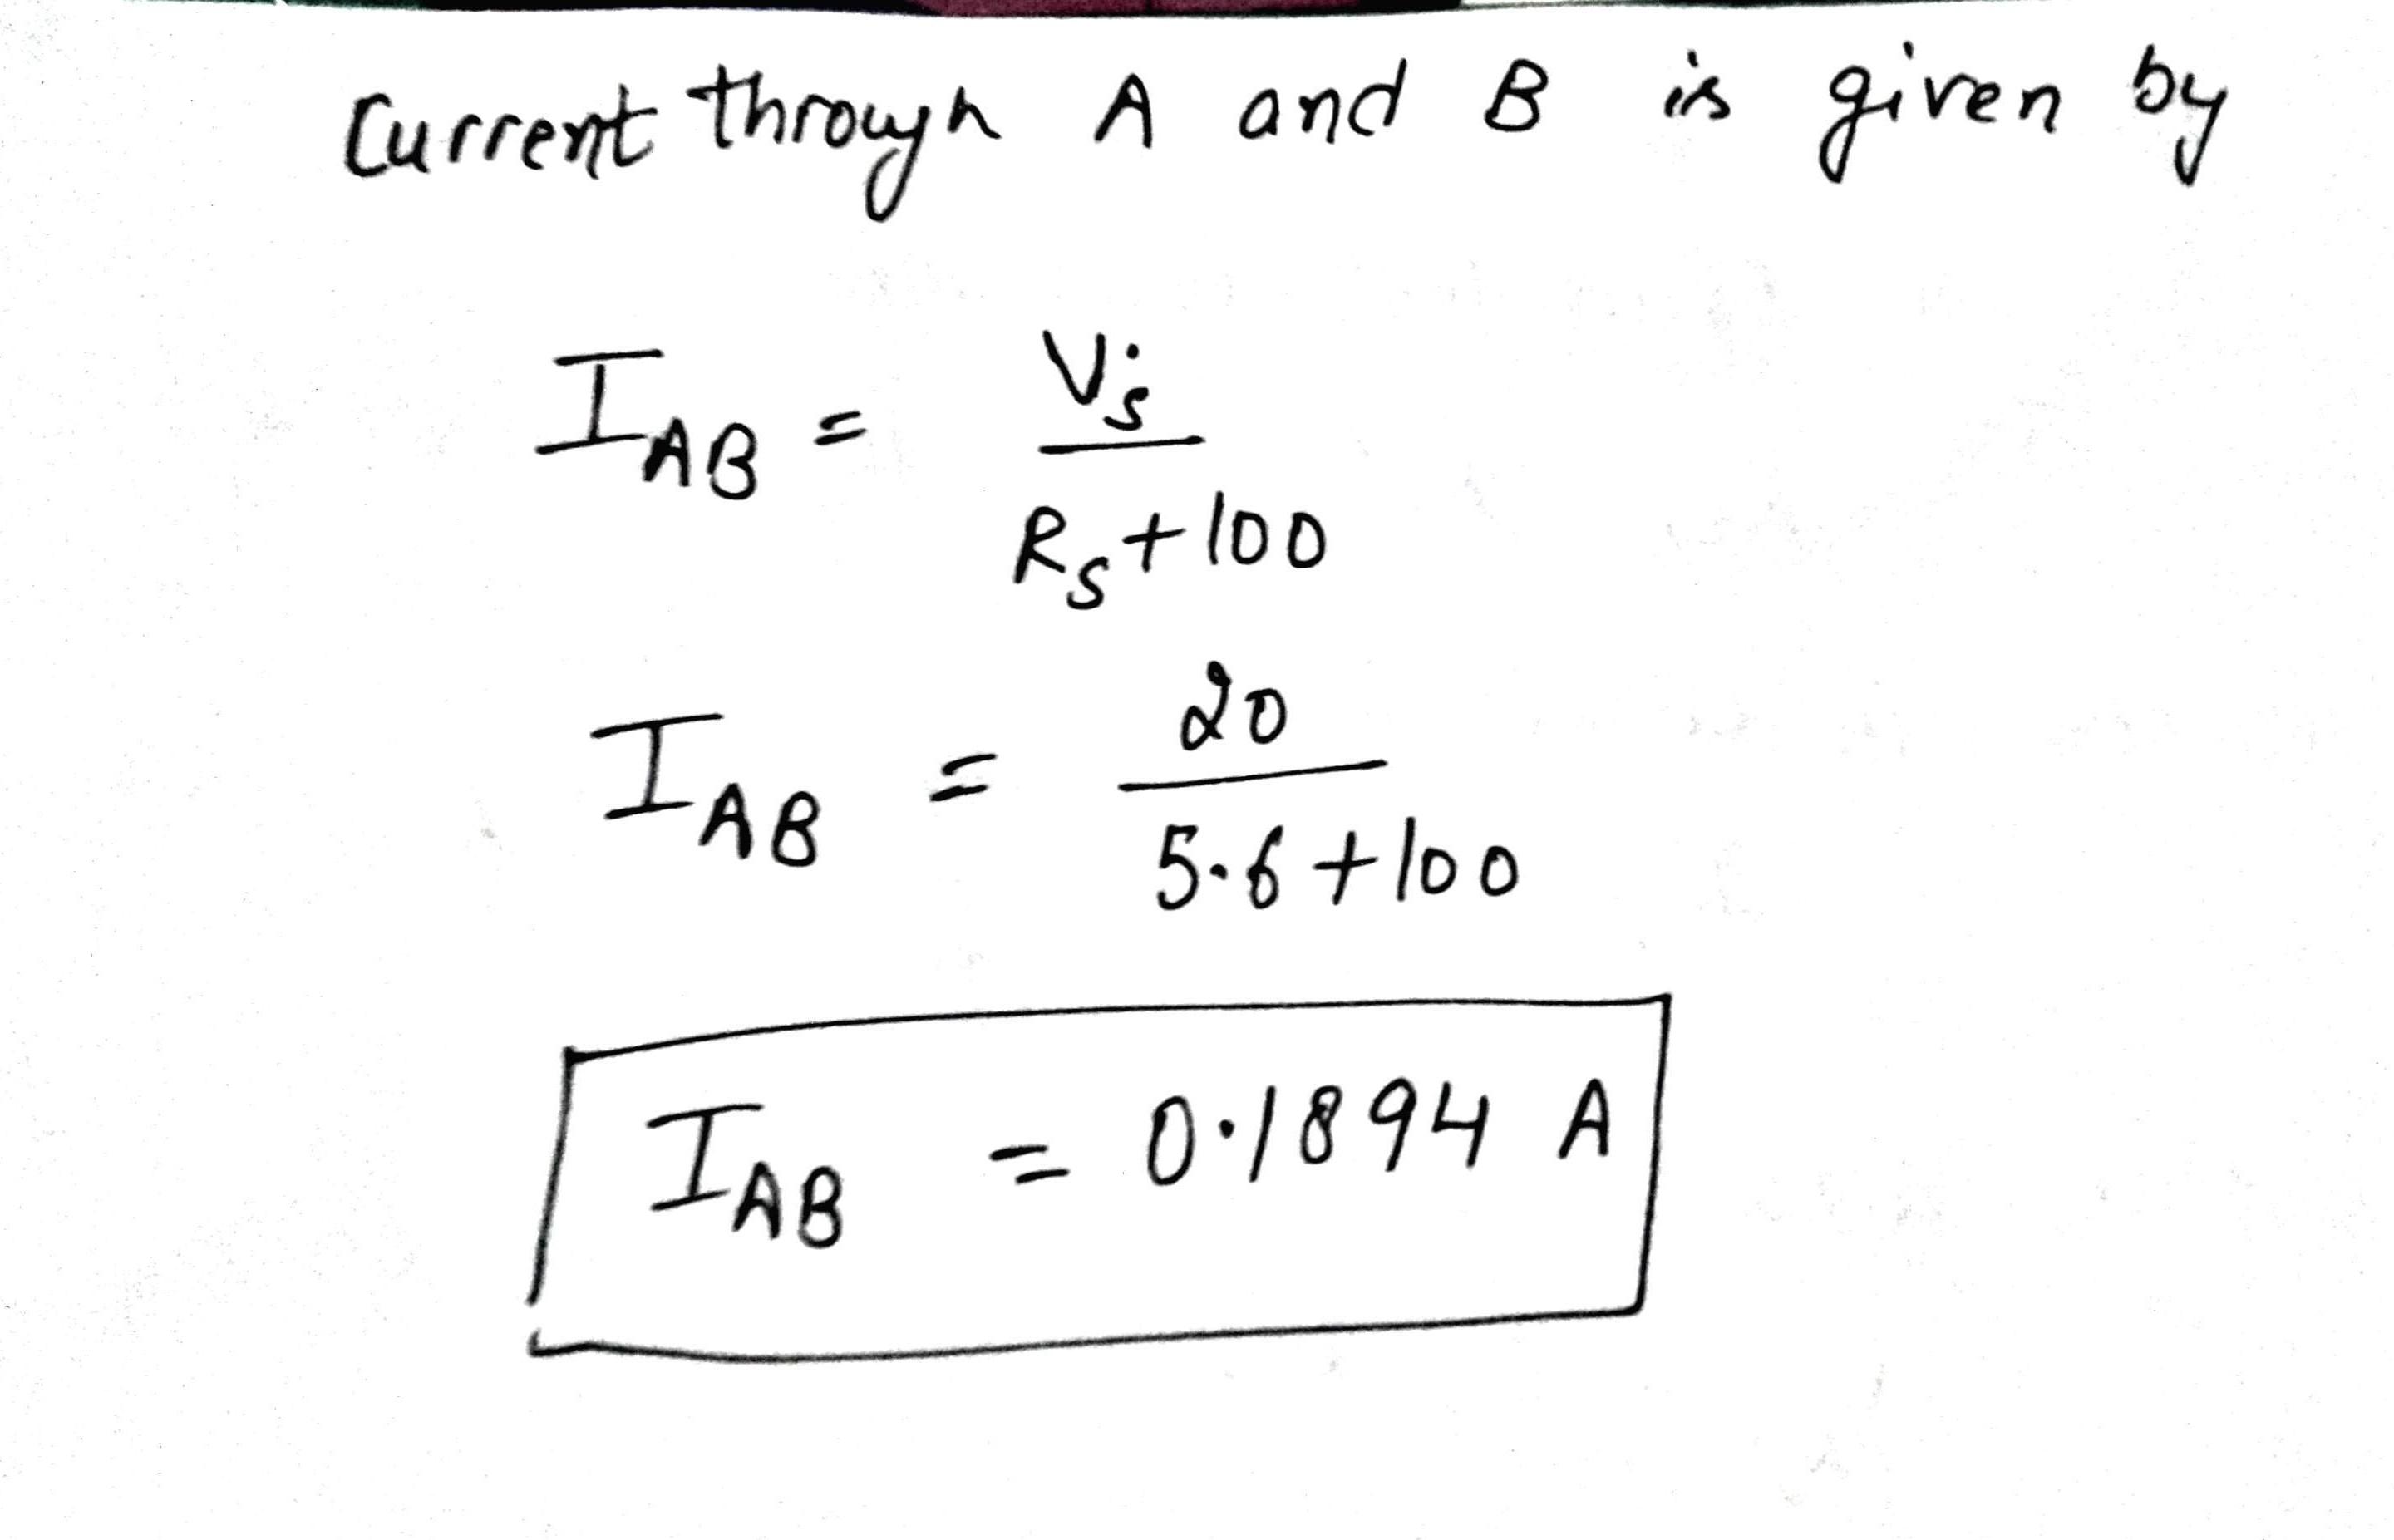 Current through A and B is given by
I_AB = V_s / R_s + 100
I_AB = 20 / 5.6 + 100
I_AB = 0.1894 A